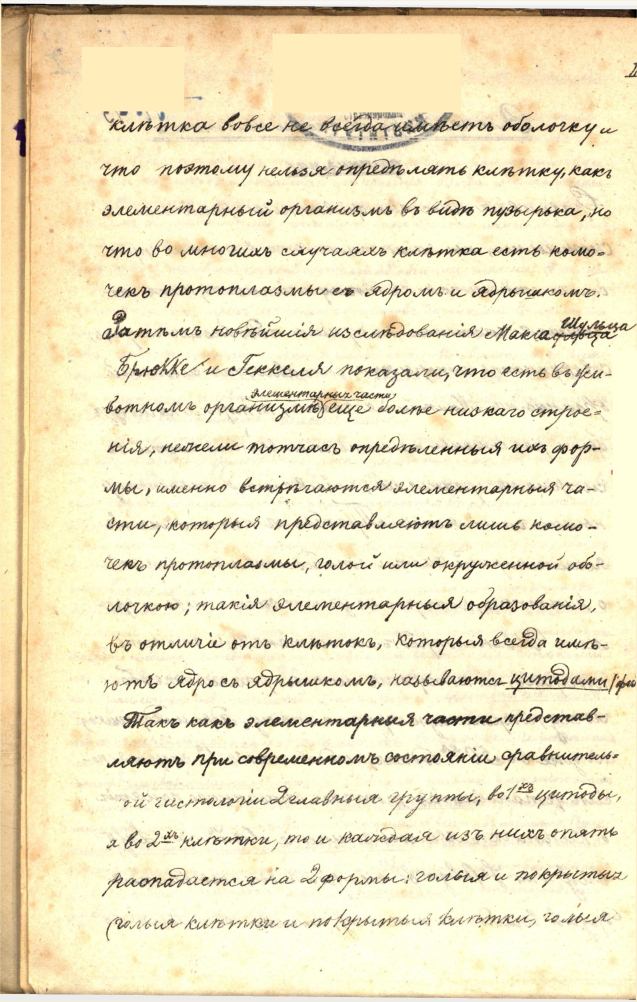 клѣтка вовсе не всегда имѣетъ оболочку и
что поэтому нельзя опредѣлять клѣтку, какъ
элементарный организмъ въ видѣ пузырька, но
что во многихъ случаяхъ клѣтка есть комо-
чекъ протоплазмы съ ядромъ и ядрышкомъ.
Затѣмъ новѣйшія изслѣдованія Макса Шульца
Брюкке и Геккеля показали, что есть въ жи-
элементарныя части
вотномъ организмѣ еще болѣе низкаго строе-
нія, нежели тотчасъ опредѣленныя ихъ фор-
мы, именно встрѣчаются элементарныя ча-
сти, которыя представляютъ лишь комо-
чекъ протоплазмы, голой или окруженной обо-
лочкою; такія элементарныя образованія,
въ отличіе отъ клѣтокъ, которыя всегда имѣ-
ютъ ядро съ ядрышкомъ, называются цитодами
Такъ какъ элементарныя части представ-
ляютъ при современномъ состояніи сравнитель-
ой гистологіи 2 главныя группы, во 1хъ цитоды,
а во 2хъ клѣтки, то и каждая изъ нихъ опять
распадается на 2 формы: голыя и покрытыя
(голыя клѣтки и покрытыя клѣтки, голыя